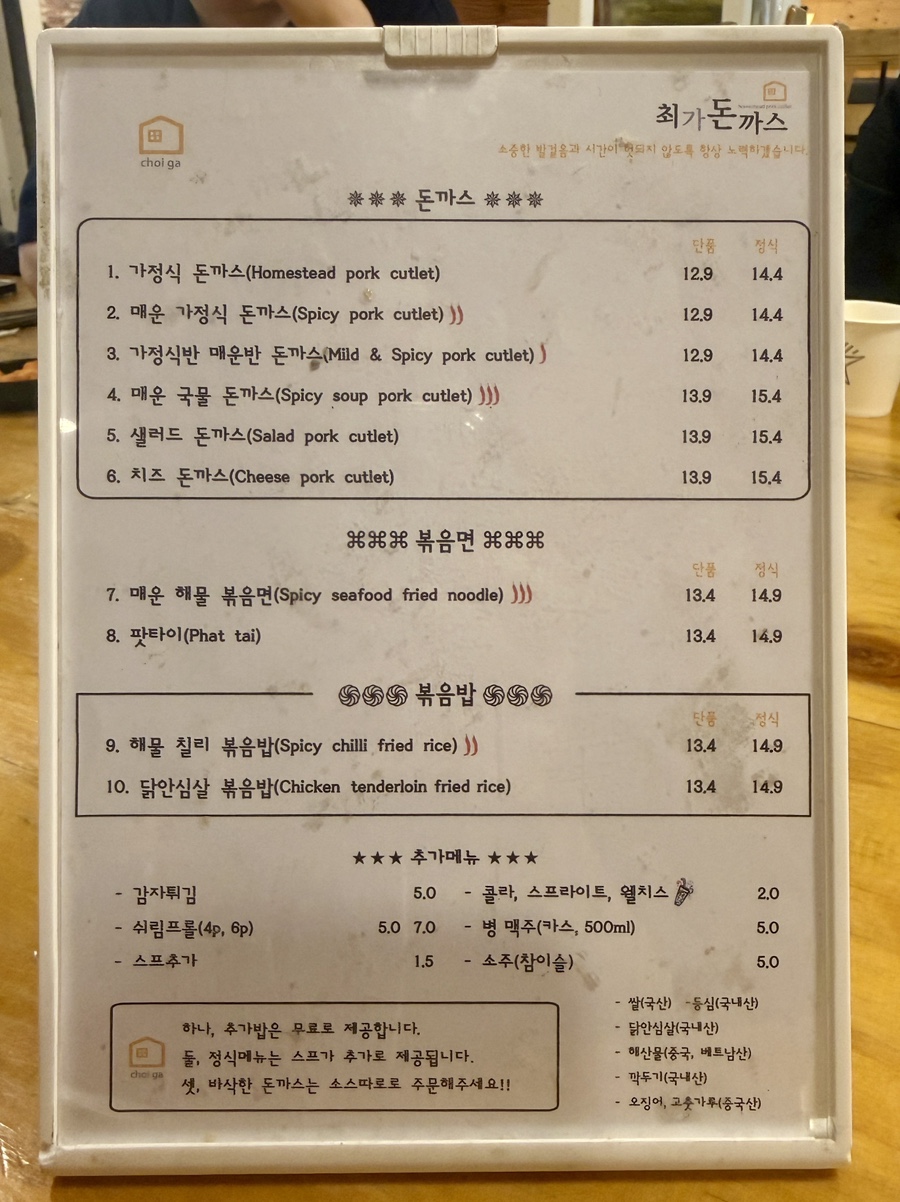 choi ga
최가돈까스
소중한 발걸음과 시간이 헛되지 않도록 항상 노력하겠습니다.
돈까스
단품 정식
1. 가정식 돈까스(Homestead pork cutlet) 12.9 14.4
2. 매운 가정식 돈까스(Spicy pork cutlet) 12.9 14.4
3. 가정식반 매운반 돈까스(Mild & Spicy pork cutlet) 12.9 14.4
4. 매운 국물 돈까스(Spicy soup pork cutlet) 13.9 15.4
5. 샐러드 돈까스(Salad pork cutlet) 13.9 15.4
6. 치즈 돈까스(Cheese pork cutlet) 13.9 15.4
⌘⌘⌘ 볶음면 ⌘⌘⌘
단품 정식
7. 매운 해물 볶음면(Spicy seafood fried noodle) 13.4 14.9
8. 팟타이(Phat tai) 13.4 14.9
볶음밥
단품 정식
9. 해물 칠리 볶음밥(Spicy chilli fried rice) 13.4 14.9
10. 닭안심살 볶음밥(Chicken tenderloin fried rice) 13.4 14.9
★★★ 추가메뉴 ★★★
- 감자튀김 5.0 - 콜라, 스프라이트, 웰치스 2.0
- 쉬림프롤(4p, 6p) 5.0 7.0 - 병 맥주(카스, 500ml) 5.0
- 스프추가 1.5 - 소주(참이슬) 5.0
choi ga
하나, 추가밥은 무료로 제공합니다.
둘, 정식메뉴는 스프가 추가로 제공됩니다.
셋, 바삭한 돈까스는 소스따로로 주문해주세요!!
- 쌀(국산) -등심(국내산)
- 닭안심살(국내산)
- 해산물(중국, 베트남산)
- 깍두기(국내산)
- 오징어, 고춧가루(중국산)